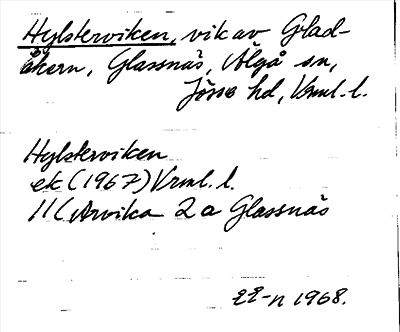 Hylsterviken, vik av Glad-
åkern, Glassnäs, Älgå sn,
Jösse hd, Vrml. l.
Hylsterviken
ek (1967) Vrml. l.
11C Arvika 2a Glassnäs
1968.